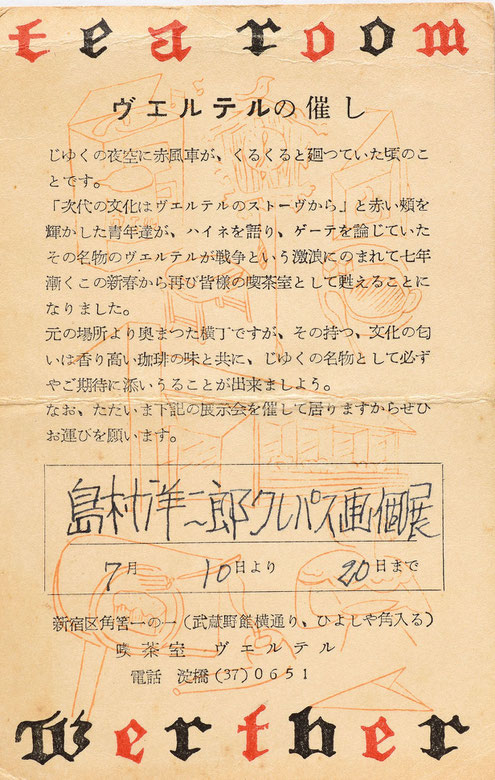 tea room
ヴェルテルの催し
じゆくの夜空に赤風車が、くるくると廻つていた頃のこ
とです。
「次代の文化はヴエルテルのストーヴから」と赤い頬を
輝かした青年達が、ハイネを語り、ゲーテを論じていた
その名物のヴエルテルが戦争という激浪にのまれて七年
漸くこの新春から再び皆様の喫茶室として甦えることに
なりました。
元の場所より奥まつた横丁ですが、その持つ、文化の匂
いは香り高い珈琲の味と共に、じゆくの名物として必ず
やご期待に添いうることが出来ましよう。
なお、ただいま下記の展示会を催して居りますからぜひ
お運びを願います。
島村洋二郎クレパス画個展
7月 10日より 20日まで
新宿区角筈一の一(武蔵野館横通り、ひよしや角入る)
喫茶室 ヴエルテル
電話 淀橋(37)0651
Werther